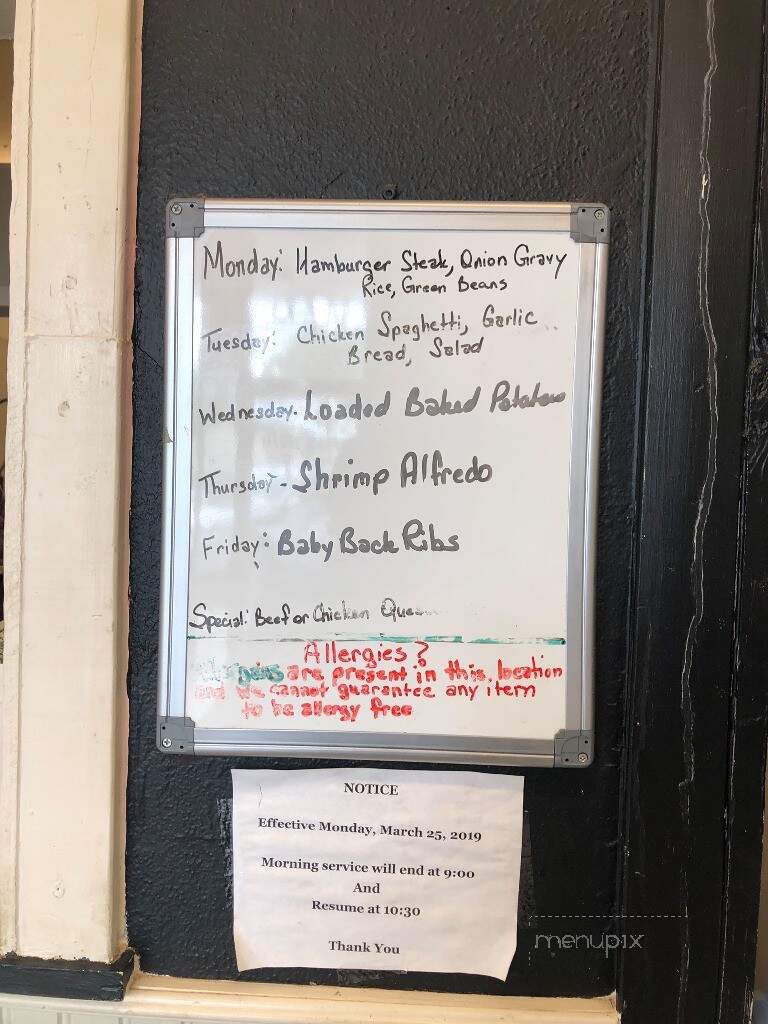 Monday: Hamburger Steak, Onion Gravy
Rice, Green Beans
Tuesday: Chicken Spaghetti, Garlic
Bread, Salad
Wednesday. Loaded Baked
Thursday - Shrimp Alfredo
Friday: Baby Back Ribs
Special: Beef or Chicken
Allergies?
are present in this location
and we cannot guarantee any item
to be allergy free
NOTICE
Effective Monday, March 25, 2019
Morning service will end at 9:00
And
Resume at 10:30
Thank You
menupix